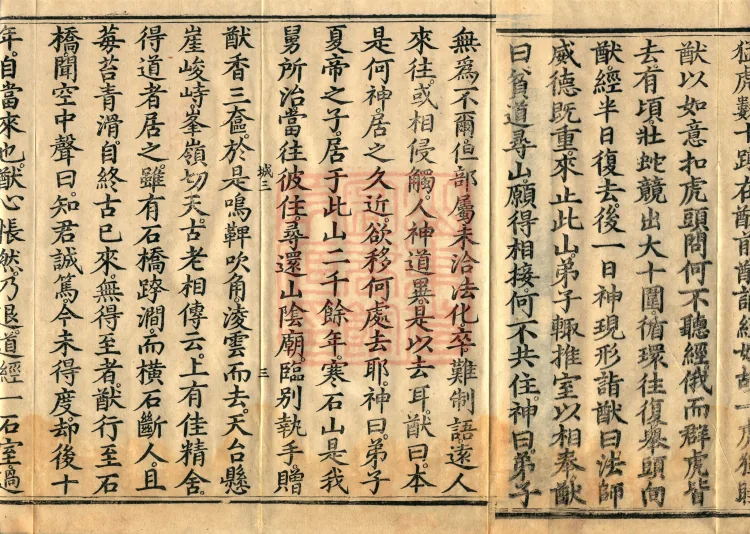 猷以如意扣虎頭問何不聽經。俄而群虎皆
去。有頃。壯蛇競出。大十圍。循環往復。舉頭向
猷。經半日復去。後一日神現形詣猷曰。法師
威德既重。來止此山。弟子輙推室以相奉。猷
曰。貧道尋山。願得相接。何不共住。神曰。弟子
無爲不爾。但部屬未洽法化。卒難制語。遠人
來往。或相侵觸。人神道異。是以去耳。猷曰。本
是何神。居之久近。欲移何處去耶。神曰。弟子
夏帝之子。居于此山二千餘年。寒石山是我
舅所治。當往彼住。尋還山陰廟。臨別執手。贈
城三
三
猷香三奩。於是鳴鞞吹角。凌雲而去。天台懸
崖峻峙。峯嶺切天。古老相傳云。上有佳精舍。
得道者居之。雖有石橋跨澗。而橫石斷人。且
莓苔青滑。自終古已來。無得至者。猷行至石
橋。聞空中聲曰。知君誠篤。今未得度。却後十
年。自當來也。猷心悵然。乃退。道經一石室。過